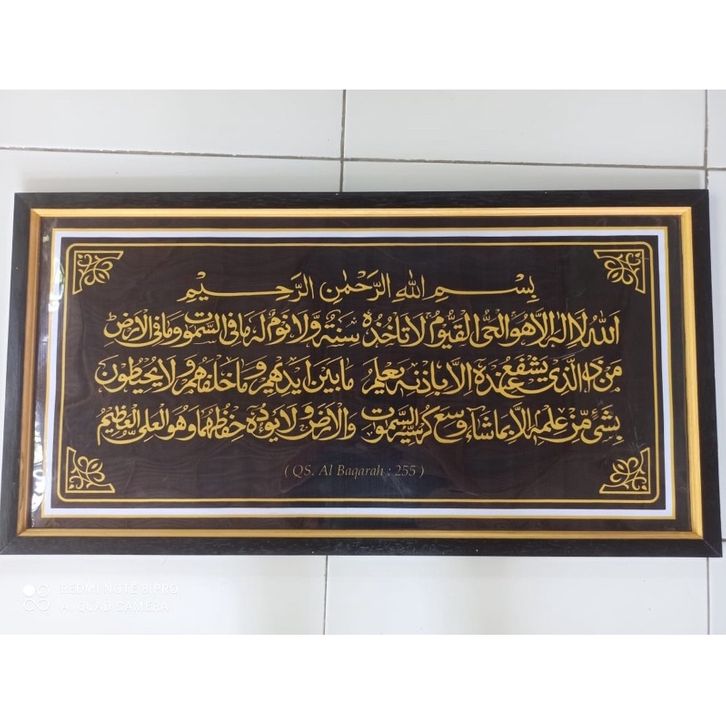 بِسْمِ اللهِ الرَّحْمٰنِ الرَّحِيْمِ
اللهُ لَا اِلٰهَ اِلَّا هُوَ الْحَيُّ الْقَيُّوْمُ لَا تَأْخُذُهٗ سِنَةٌ وَّلَا نَوْمٌ لَهٗ مَا فِى السَّمٰوٰتِ وَمَا فِى الْاَرْضِ
مَنْ ذَا الَّذِيْ يَشْفَعُ عِنْدَهٗ اِلَّا بِاِذْنِهٖ يَعْلَمُ مَا بَيْنَ اَيْدِيْهِمْ وَمَا خَلْفَهُمْ وَلَا يُحِيْطُوْنَ
بِشَيْءٍ مِّنْ عِلْمِهٖ اِلَّا بِمَا شَاءَ وَسِعَ كُرْسِيُّهُ السَّمٰوٰتِ وَالْاَرْضَ وَلَا يَئُوْدُهٗ حِفْظُهُمَا وَهُوَ الْعَلِيُّ الْعَظِيْمُ
( QS. Al Baqarah : 255 )
REDMI NOTE 8 PRO
AI QUAD CAMERA